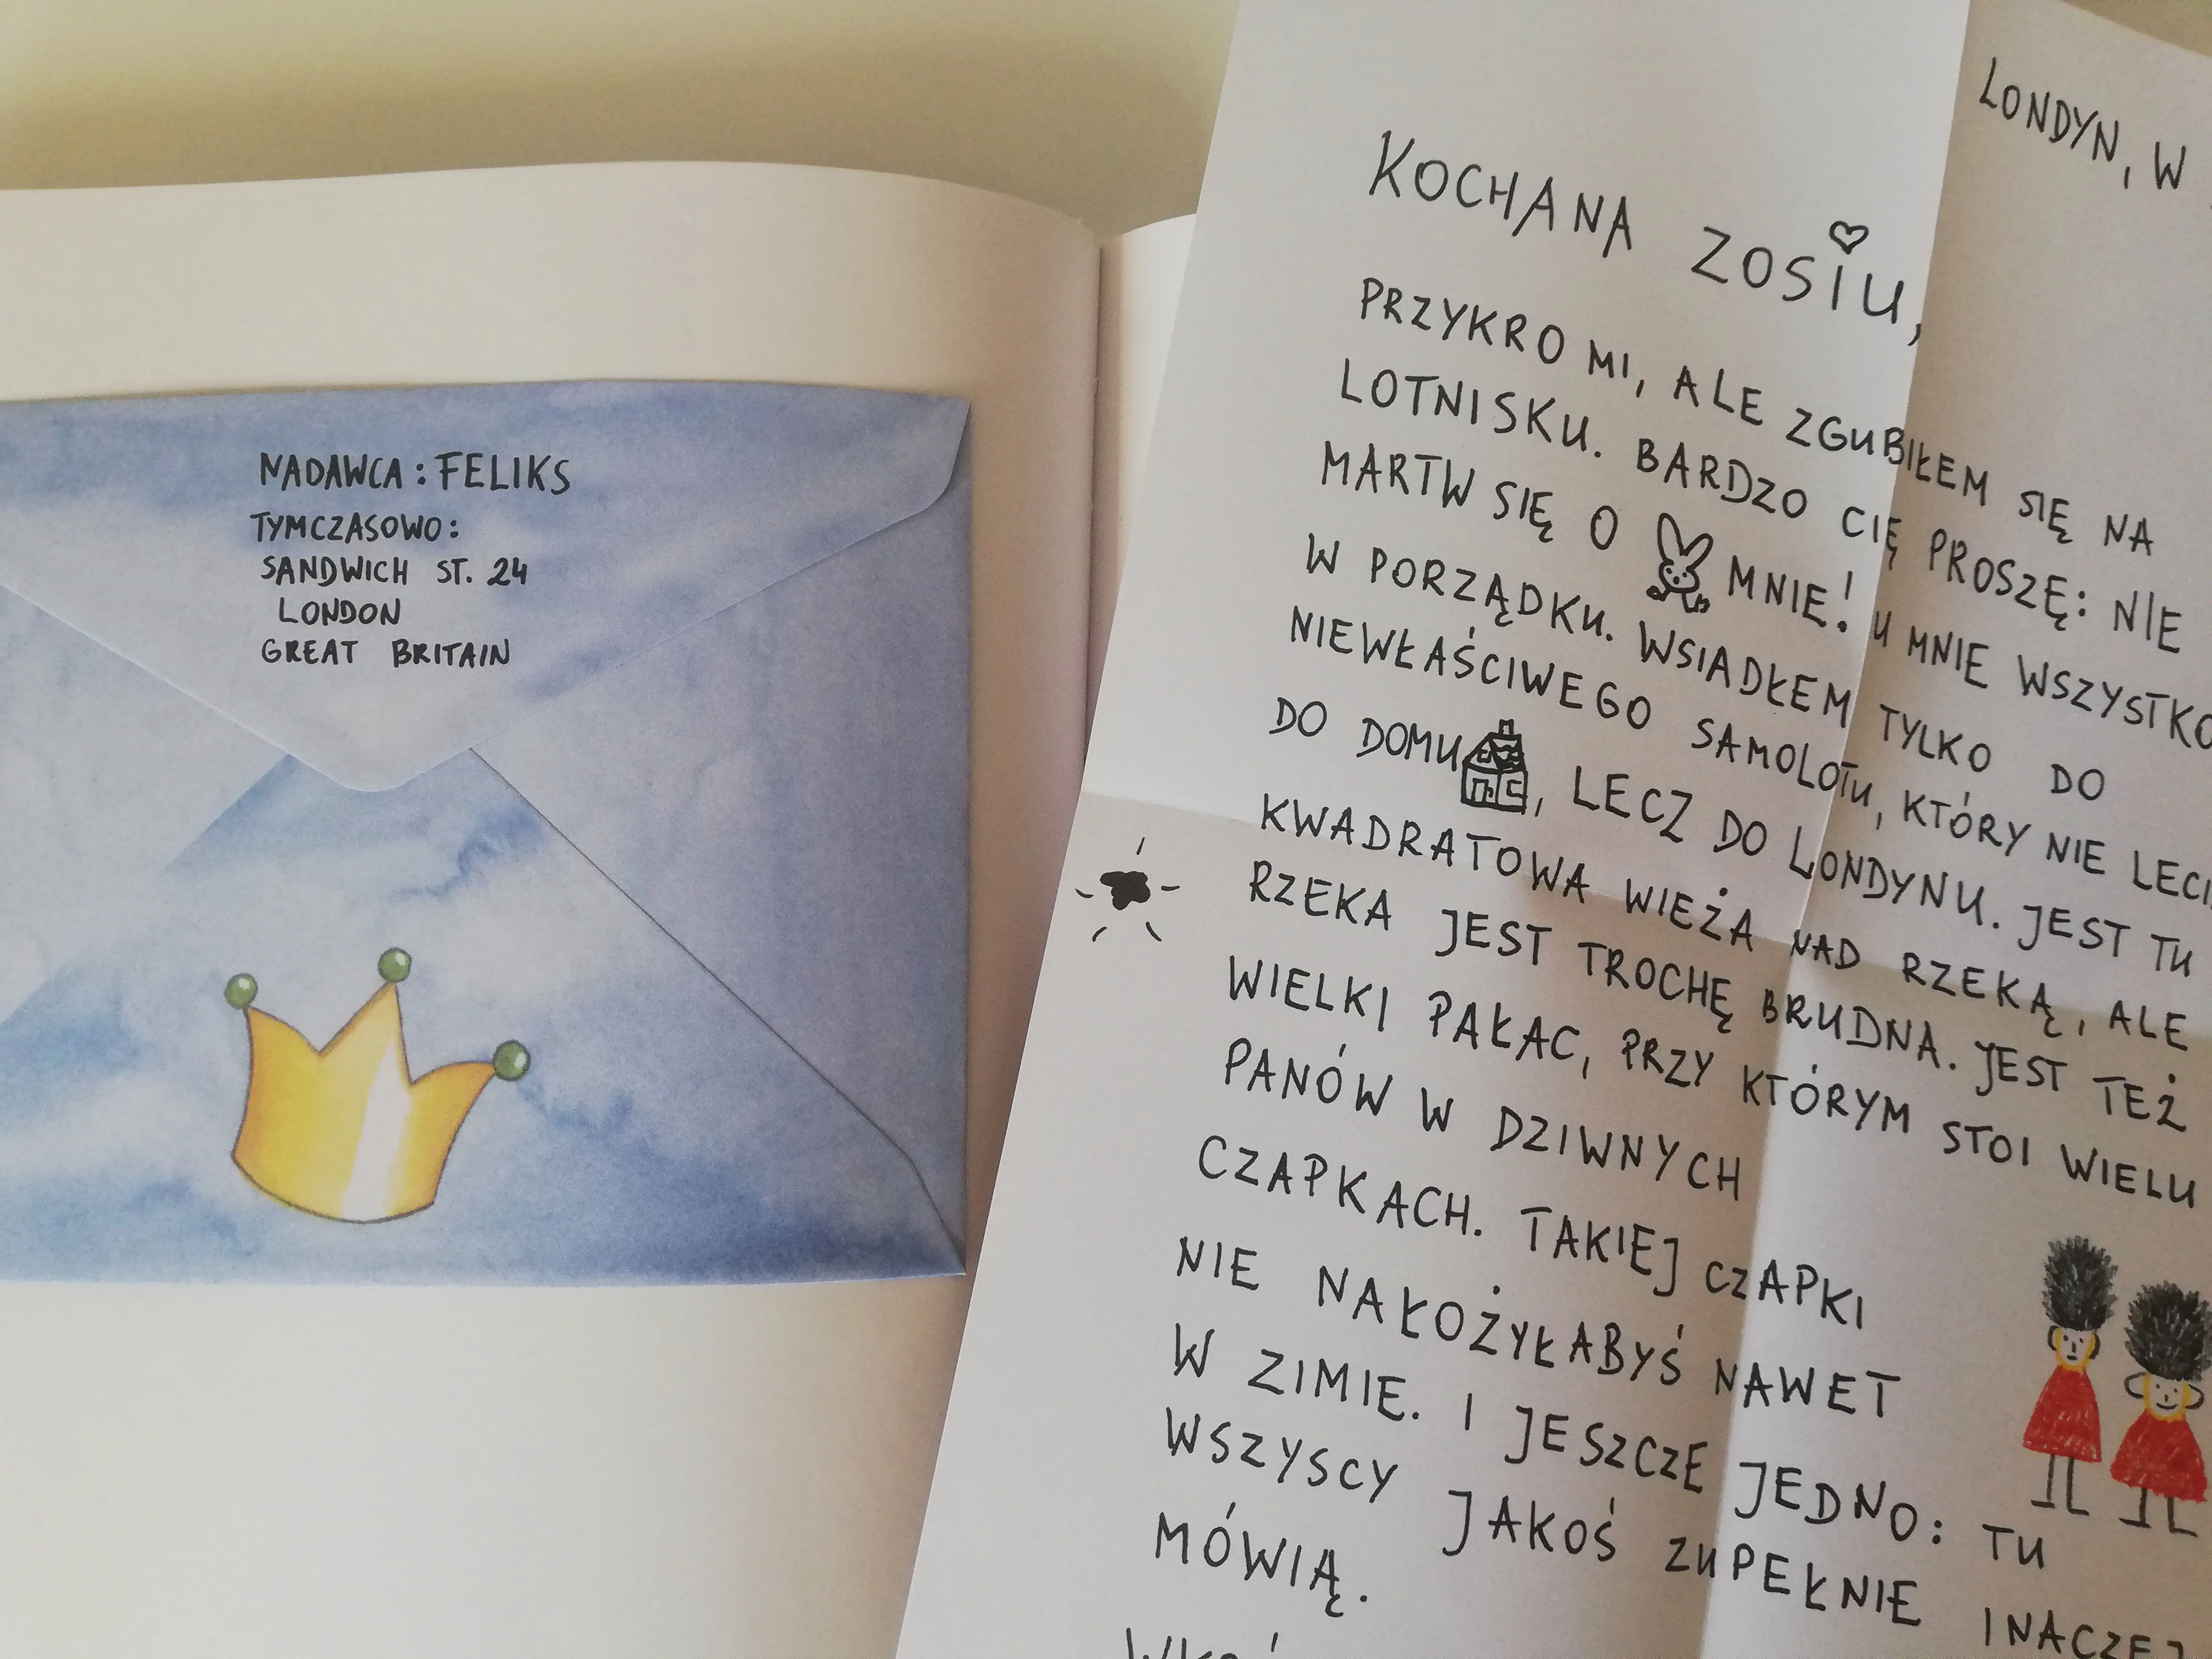 NADAWCA: FELIKS
TYMCZASOWO:
SANDWICH ST. 24
LONDON
GREAT BRITAIN
LONDYN, W
KOCHANA ZOSIU,
PRZYKRO MI, ALE ZGUBIŁEM SIĘ NA
LOTNISKU. BARDZO CIĘ PROSZĘ: NIE
MARTW SIĘ O MNIE! U MNIE WSZYSTKO
W PORZĄDKU. WSIADŁEM TYLKO DO
NIEWŁAŚCIWEGO SAMOLOTU, KTÓRY NIE
DO DOMU, LECZ DO LONDYNU. JEST TU
KWADRATOWA WIEŻA NAD RZEKĄ, ALE
RZEKA JEST TROCHĘ BRUDNA. JEST TEŻ
WIELKI PAŁAC, PRZY KTÓRYM STOI WIELU
PANÓW W DZIWNYCH
CZAPKACH. TAKIEJ CZAPKI
NIE NAŁOŻYŁABYŚ NAWET
W ZIMIE. I JESZCZE JEDNO: TU
WSZYSCY JAKOŚ ZUPEŁNIE INACZEJ
MÓWIĄ.